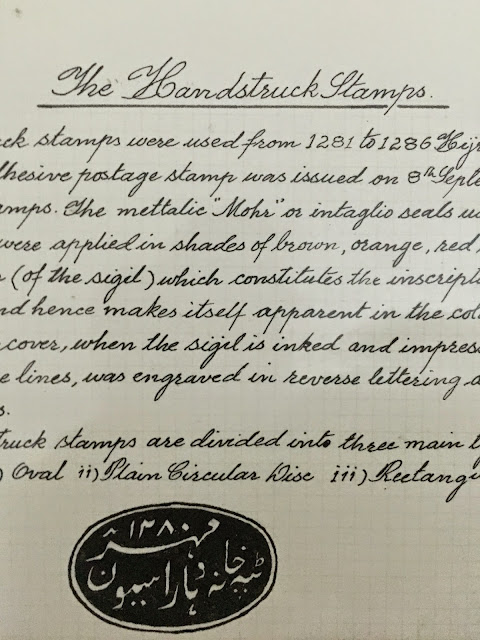 The Handstruck Stamps.
ck stamps were used from 1281 to 1286 Hijr
dhesive postage stamp was issued on 8th Septe
amps. The mettalic "Mohr" or intaglio seals us
were applied in shades of brown, orange, red,
(of the sigil) which constitutes the inscripti
nd hence makes itself apparent in the colo
cover, when the sigil is inked and impress
e lines, was engraved in reverse lettering a
s.
truck stamps are divided into three main t
) Oval ii) Plain Circular Disc iii) Rectangu
مهر ۱۲۸۰
ٹپہ خانہ